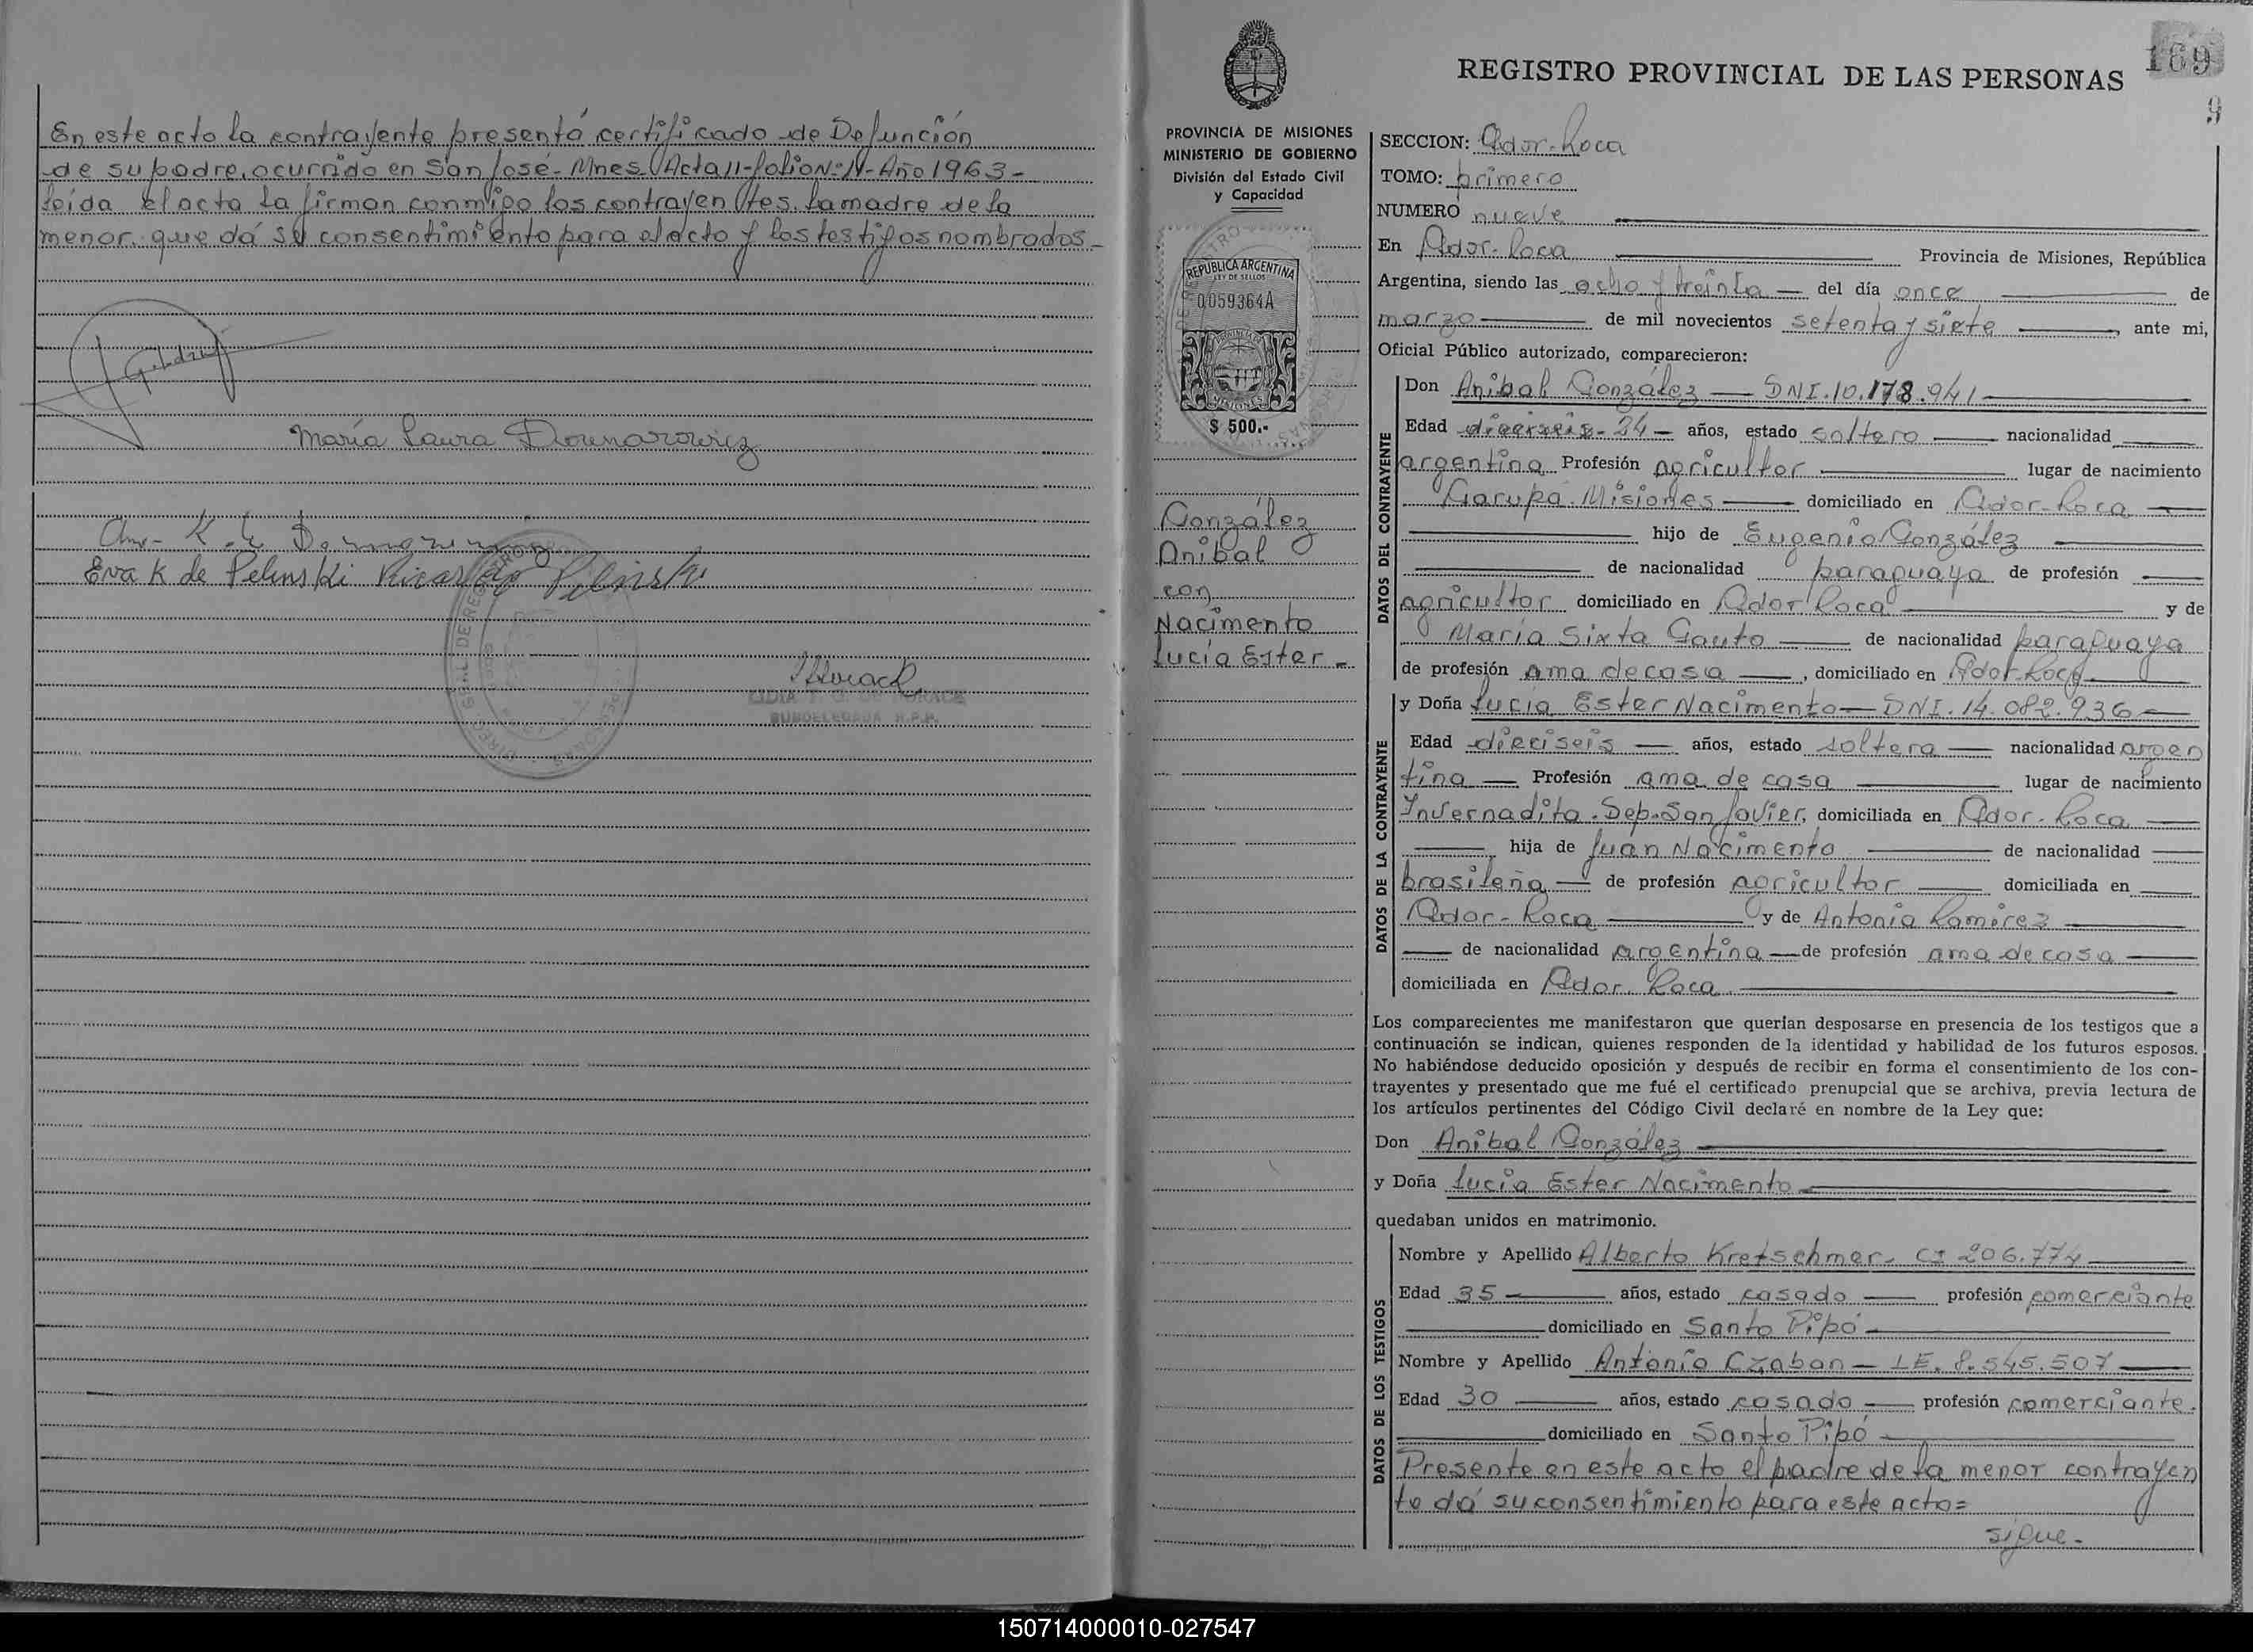 En este acto la contrayente presentá certificado de Defunción
de su padre, ocurrido en San José - Mnes. Acta 11 - folio Nº 11 - Año 1963 -
leída el acta la firman conmigo los contrayentes, la madre de la
menor que dá su consentimiento para el acto y los testigos nombrados -
María Laura
Eva K de Pelinski
169
9
REGISTRO PROVINCIAL DE LAS PERSONAS
PROVINCIA DE MISIONES
MINISTERIO DE GOBIERNO
División del Estado Civil
y Capacidad
REPUBLICA ARGENTINA
LEY DE SELLOS
0059364A
MISIONES
$ 500.-
González
Anibal
con
Nacimento
Lucía Ester -
SECCION: Gdor. Roca
TOMO: primero
NUMERO nueve
En Gdor. Roca Provincia de Misiones, República
Argentina, siendo las ocho y treinta del día once de
marzo de mil novecientos setenta y siete, ante mi,
Oficial Público autorizado, comparecieron:
DATOS DEL CONTRAYENTE
Don Anibal González — DNI. 10.178.941
Edad dieciseis - 24 - años, estado soltero nacionalidad
argentina Profesión agricultor lugar de nacimiento
Garupá. Misiones domiciliado en Gdor. Roca
hijo de Eugenio González
de nacionalidad paraguaya de profesión
agricultor domiciliado en Gdor Roca y de
María Sixta Gauto de nacionalidad paraguaya
de profesión ama de casa, domiciliado en Gdor. Roca
DATOS DE LA CONTRAYENTE
y Doña Lucía Ester Nacimento — DNI. 14.082.936
Edad dieciseis años, estado soltera nacionalidad argen
tina Profesión ama de casa lugar de nacimiento
Invernadita. Dep. San Javier, domiciliada en Gdor. Roca
hija de Juan Nacimento de nacionalidad
brasileña de profesión agricultor domiciliada en
Gdor. Roca y de Antonia Ramírez
de nacionalidad argentina de profesión ama de casa
domiciliada en Gdor. Roca
Los comparecientes me manifestaron que querían desposarse en presencia de los testigos que a
continuación se indican, quienes responden de la identidad y habilidad de los futuros esposos.
No habiéndose deducido oposición y después de recibir en forma el consentimiento de los con-
trayentes y presentado que me fué el certificado prenupcial que se archiva, previa lectura de
los artículos pertinentes del Código Civil declaré en nombre de la Ley que:
Don Anibal González
y Doña Lucía Ester Nacimento
quedaban unidos en matrimonio.
DATOS DE LOS TESTIGOS
Nombre y Apellido Alberto Kretschmer - CI 206.774
Edad 35 años, estado casado profesión comerciante
domiciliado en Santo Pipó
Nombre y Apellido Antonio Czaban — LE. 8.545.507
Edad 30 años, estado casado profesión comerciante.
domiciliado en Santo Pipó
Presente en este acto el padre de la menor contrayen
te dá su consentimiento para este acto =
sigue -
150714000010-027547